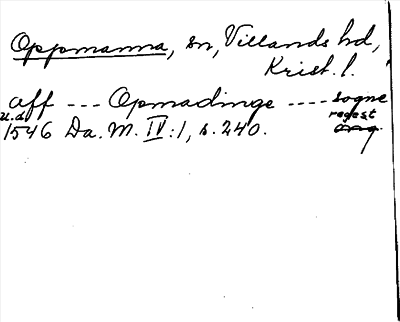 Oppmanna, sn, Villands hd,
Krist. l.
aff --- Opmadinge ---- sogne
u.d. regest
1546 Da. M. IV:1, s. 240. orig